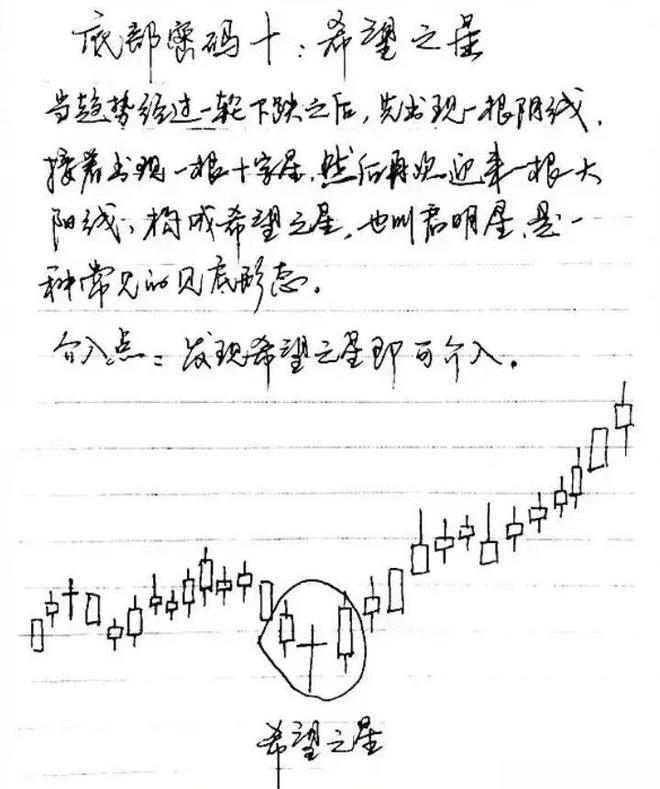 底部密码十:希望之星
当趋势经过一轮下跌之后,先出现一根阴线,
接着出现一根十字星,然后再次迎来一根大
阳线,构成希望之星,也叫启明星,是一
种常见的见底形态。
介入点:发现希望之星即可介入。
希望之星